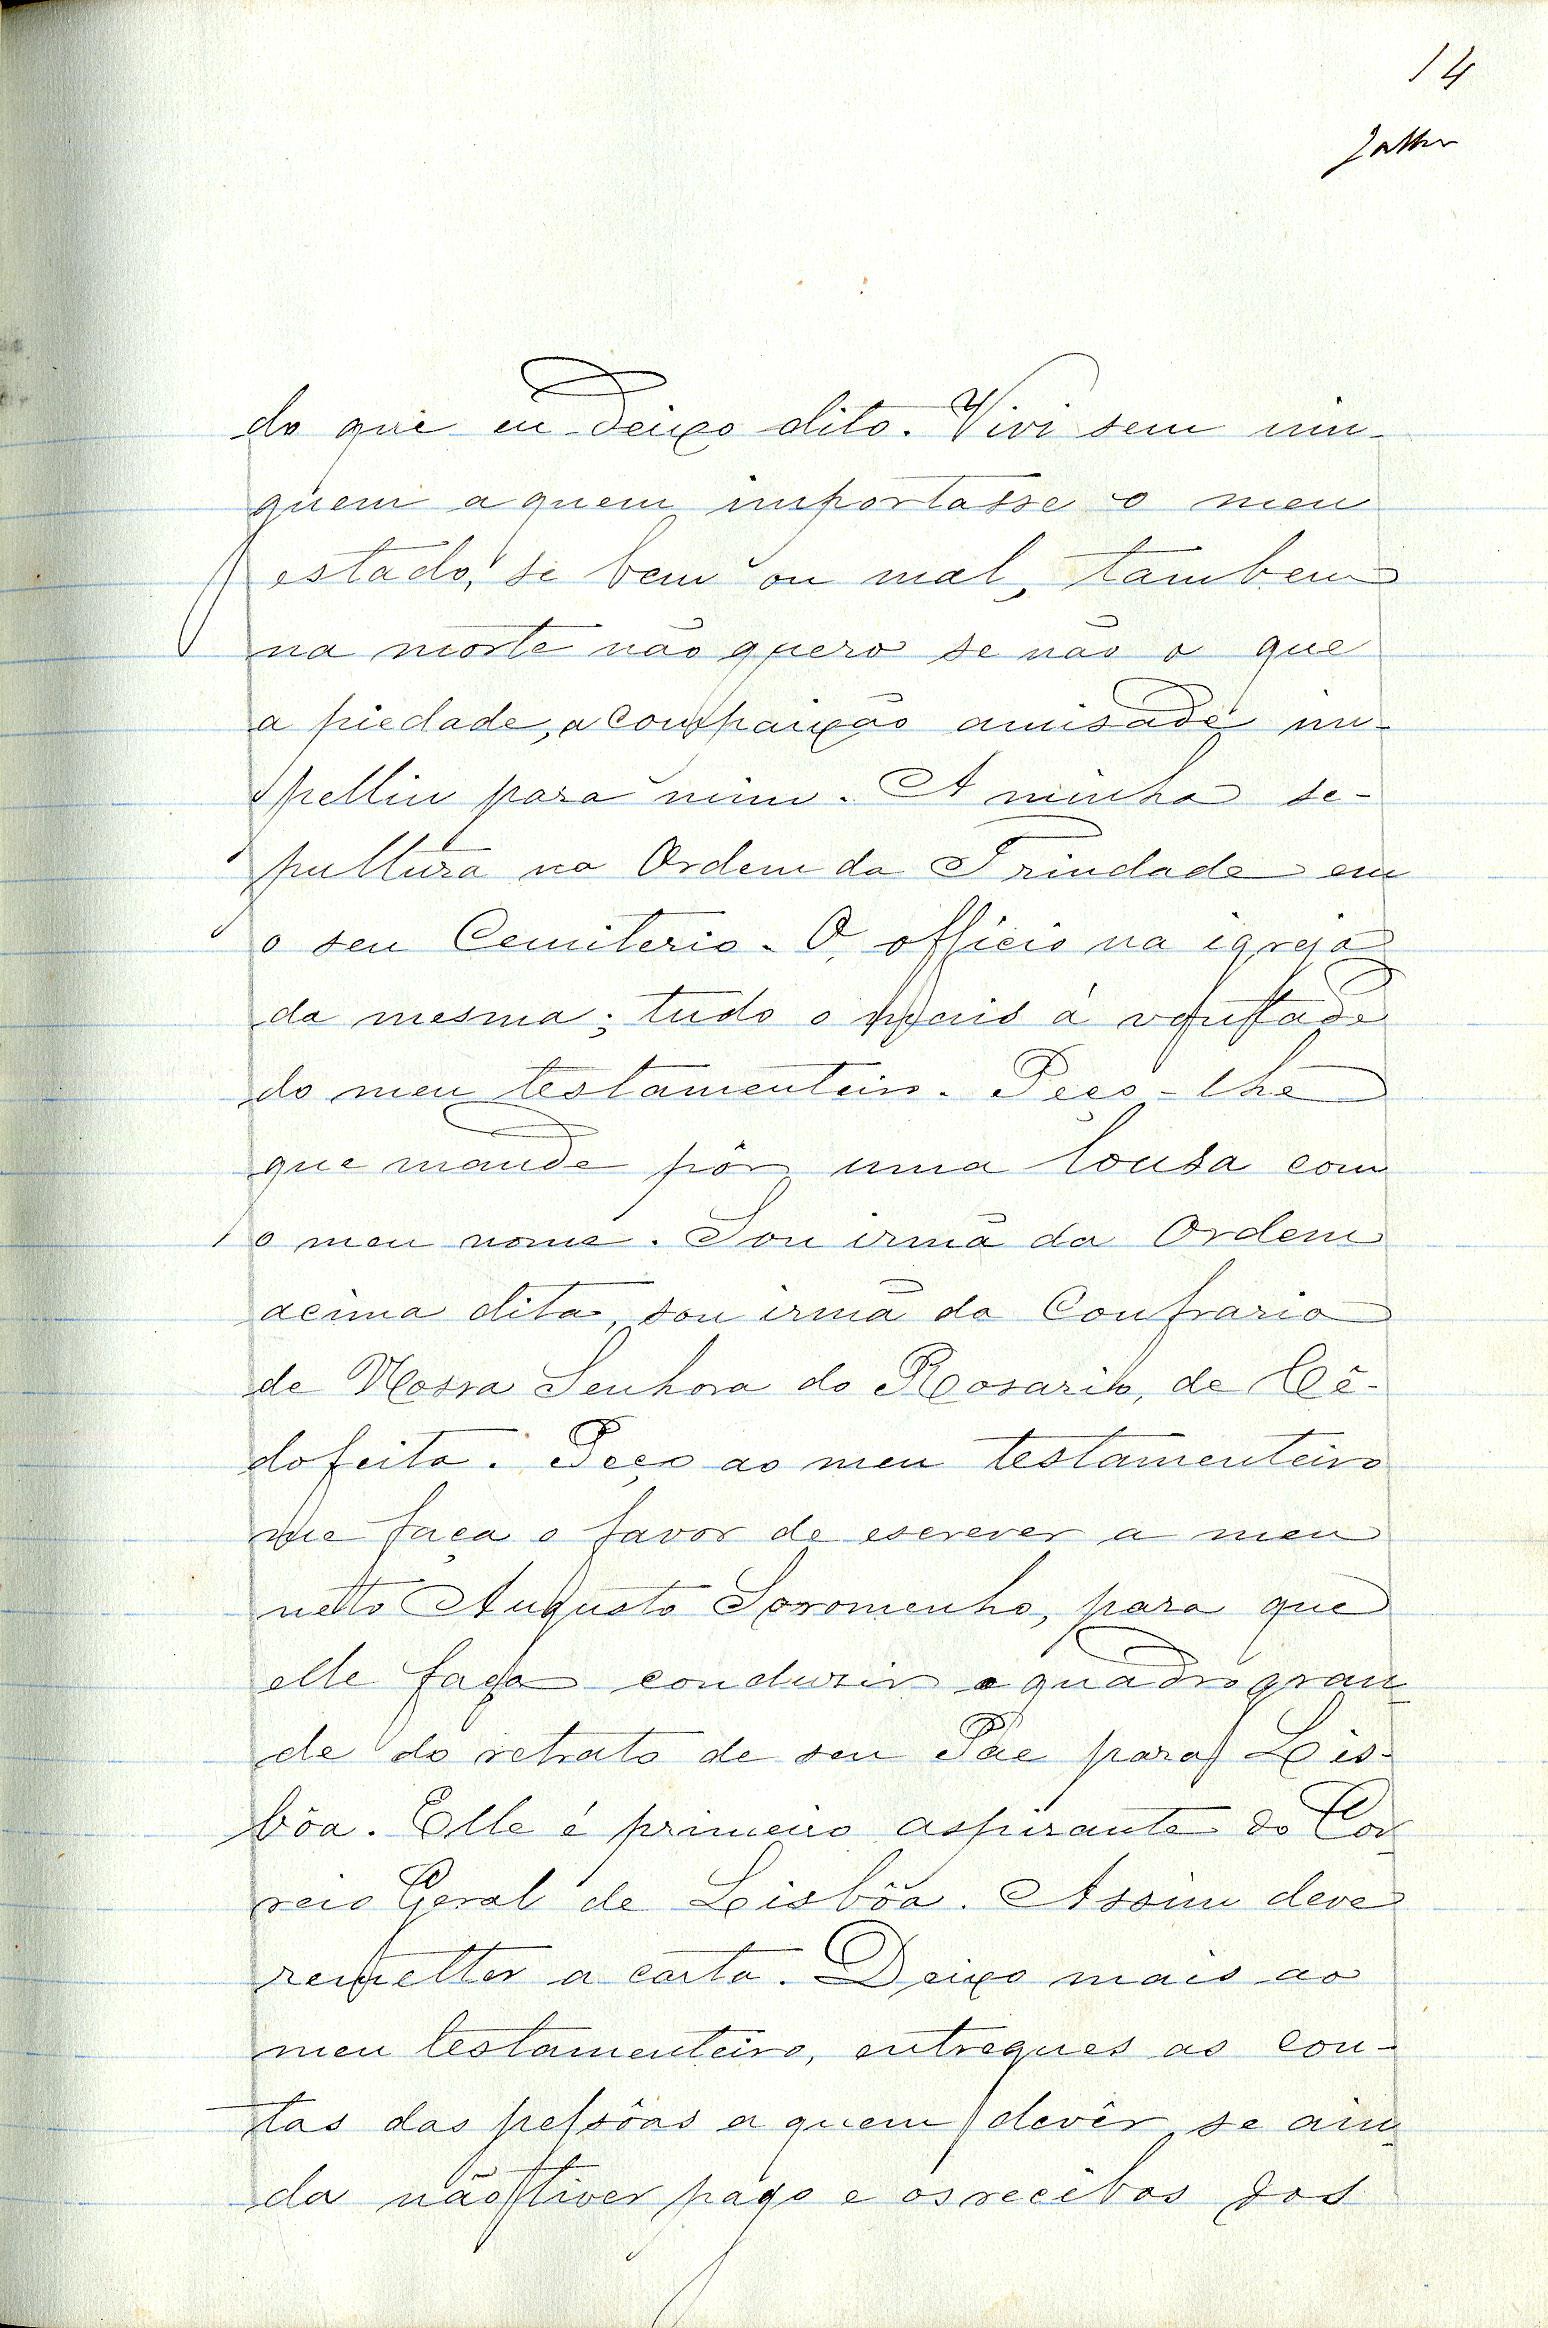 14
do que eu deixo dito. Vivi sem nin-
guem a quem importasse o meu
estado, se bem ou mal, tambem
na morte não quero se não o que
a piedade, a compaixão amisade im-
pelliu para mim. A minha se-
pultura na Ordem da Trindade em
o seu Cemiterio. O officio na igreja
da mesma; tudo o mais á vontade
do meu testamenteiro. Peço-lhe
que mande pôr uma lousa com
o meu nome. Sou irmã da Ordem
acima dita, sou irmã da Confraria
de Nossa Senhora do Rosario, de Cê-
dofeita. Peço ao meu testamenteiro
me faça o favor de escrever a meu
netto Augusto Soromenho, para que
elle faça conduzir o quadro gran-
de do retrato de seu Pae para Lis-
bôa. Elle é primeiro aspirante do Cor-
reio Geral de Lisbôa. Assim deve
remetter a carta. Deixo mais ao
meu testamenteiro, entregues as con-
tas das pessôas a quem devêr se ain-
da não tiver pago e os recibos dos